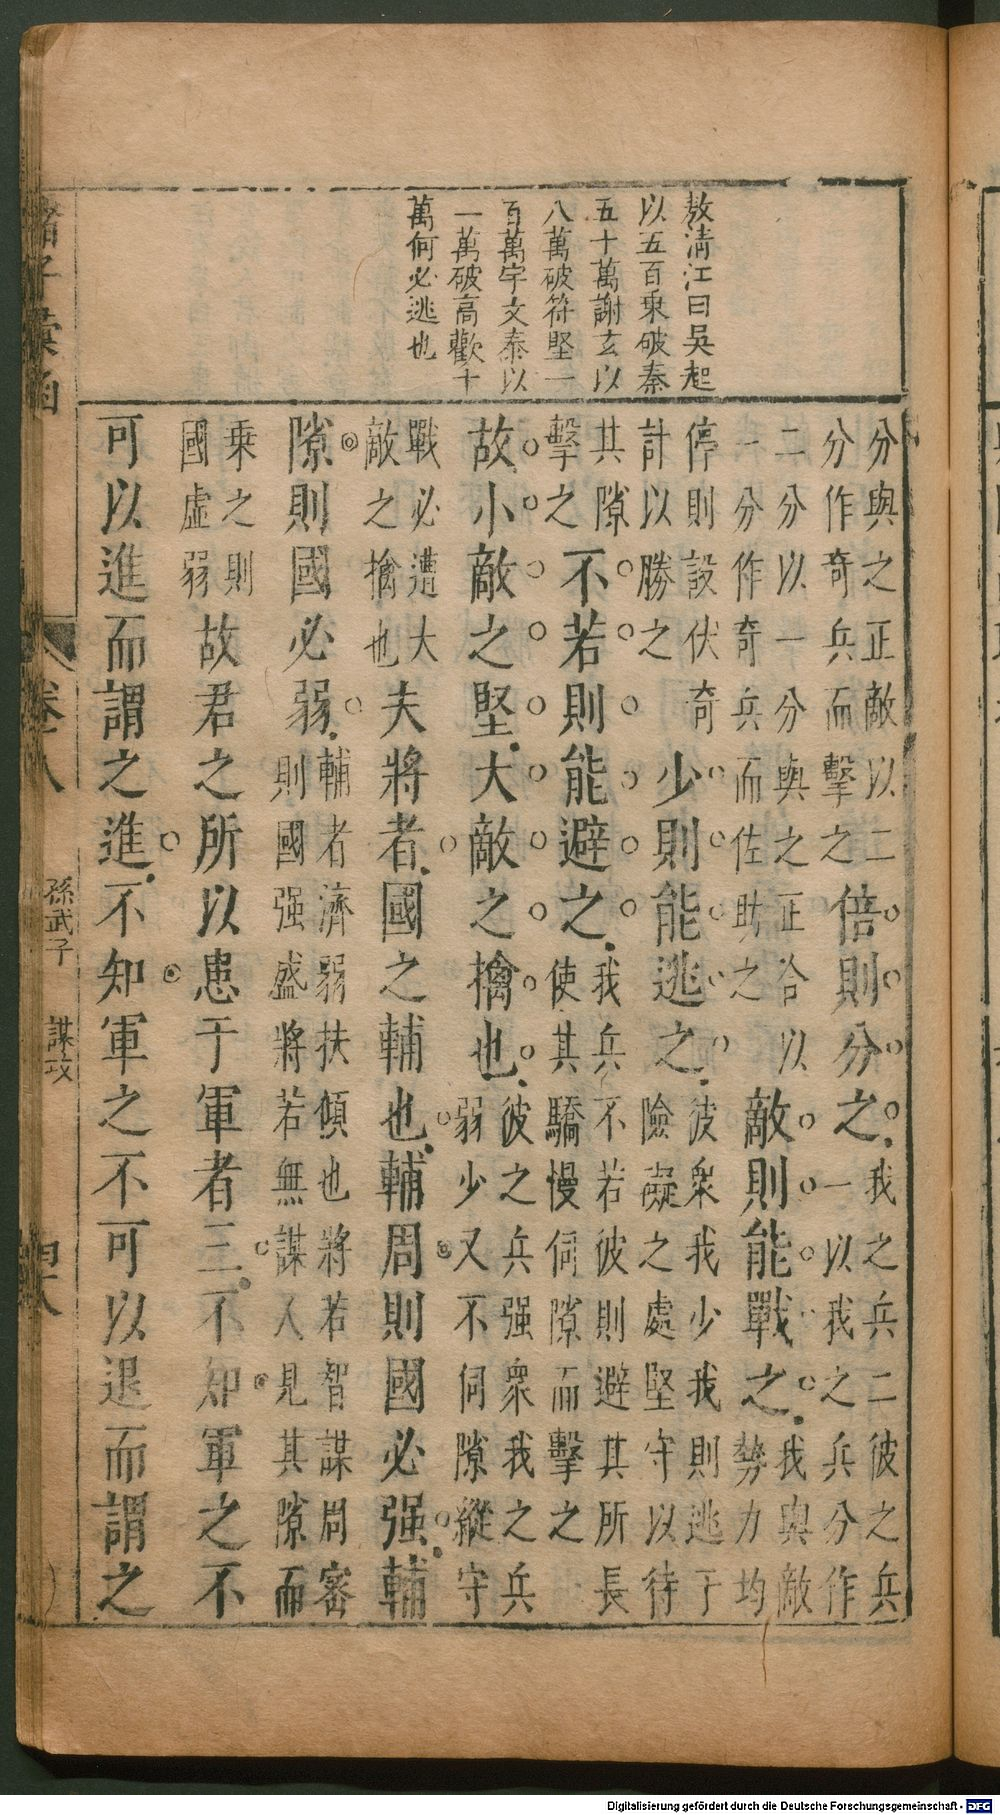 敖清江曰吳起
以五百乘破秦
五十萬謝玄以
八萬破符堅一
百萬宇文泰以
一萬破高歡十
萬何必逃也
分與之正敵以二
分作奇兵而擊之
倍則分之
我之兵二彼之兵
一以我之兵分作
二分以一分與之正合以
一分作奇兵而佐助之
敵則能戰之
我與敵
勢力均
停則設伏奇
計以勝之
少則能逃之
彼衆我少我則逃于
險礙之處堅守以待
其隙
擊之
不若則能避之
我兵不若彼則避其所長
使其驕慢伺隙而擊之
故小敵之堅大敵之擒也
彼之兵强衆我之兵
弱少又不伺隙縱守
戰必遭大
敵之擒也
夫將者國之輔也輔周則國必强輔
隙則國必弱
輔者濟弱扶傾也將若智謀周審
則國强盛將若無謀人見其隙而
乘之則
國虛弱
故君之所以患于軍者三不知軍之不
可以進而謂之進不知軍之不可以退而謂之
諸子彙函
卷八
孫武子
謀攻
Digitalisierung gefördert durch die Deutsche Forschungsgemeinschaft - DFG